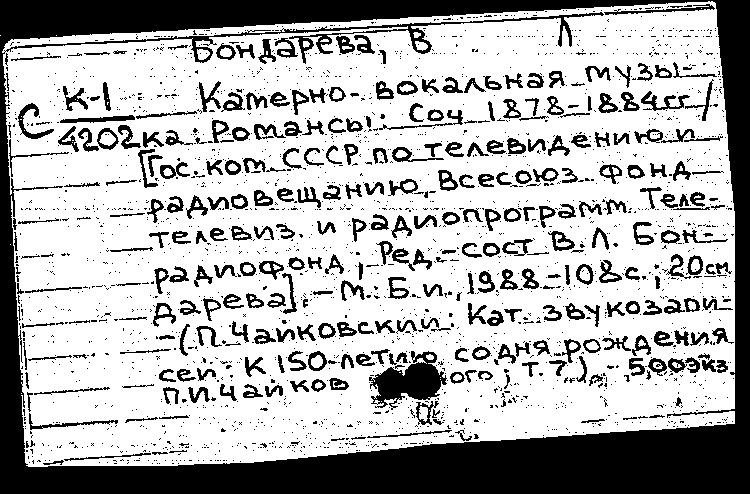 Бондарева, В Л
К-1 Камерно-вокальная музы-
С 4202 ка: Романсы: Соч 1878-1884гг /
[Гос. ком. СССР по телевидению и
радиовещанию, Всесоюз. фонд
телевиз. и радиопрограмм. Теле-
радиофонд; Ред.-сост В.Л. Бон-
дарева]. – М.: Б.и., 1988 – 108с.; 20см
– (П. Чайковский: Кат. звукозапи-
сей: К 150-летию со дня рождения
П.И. Чайков ого; т. 7) – 500экз.